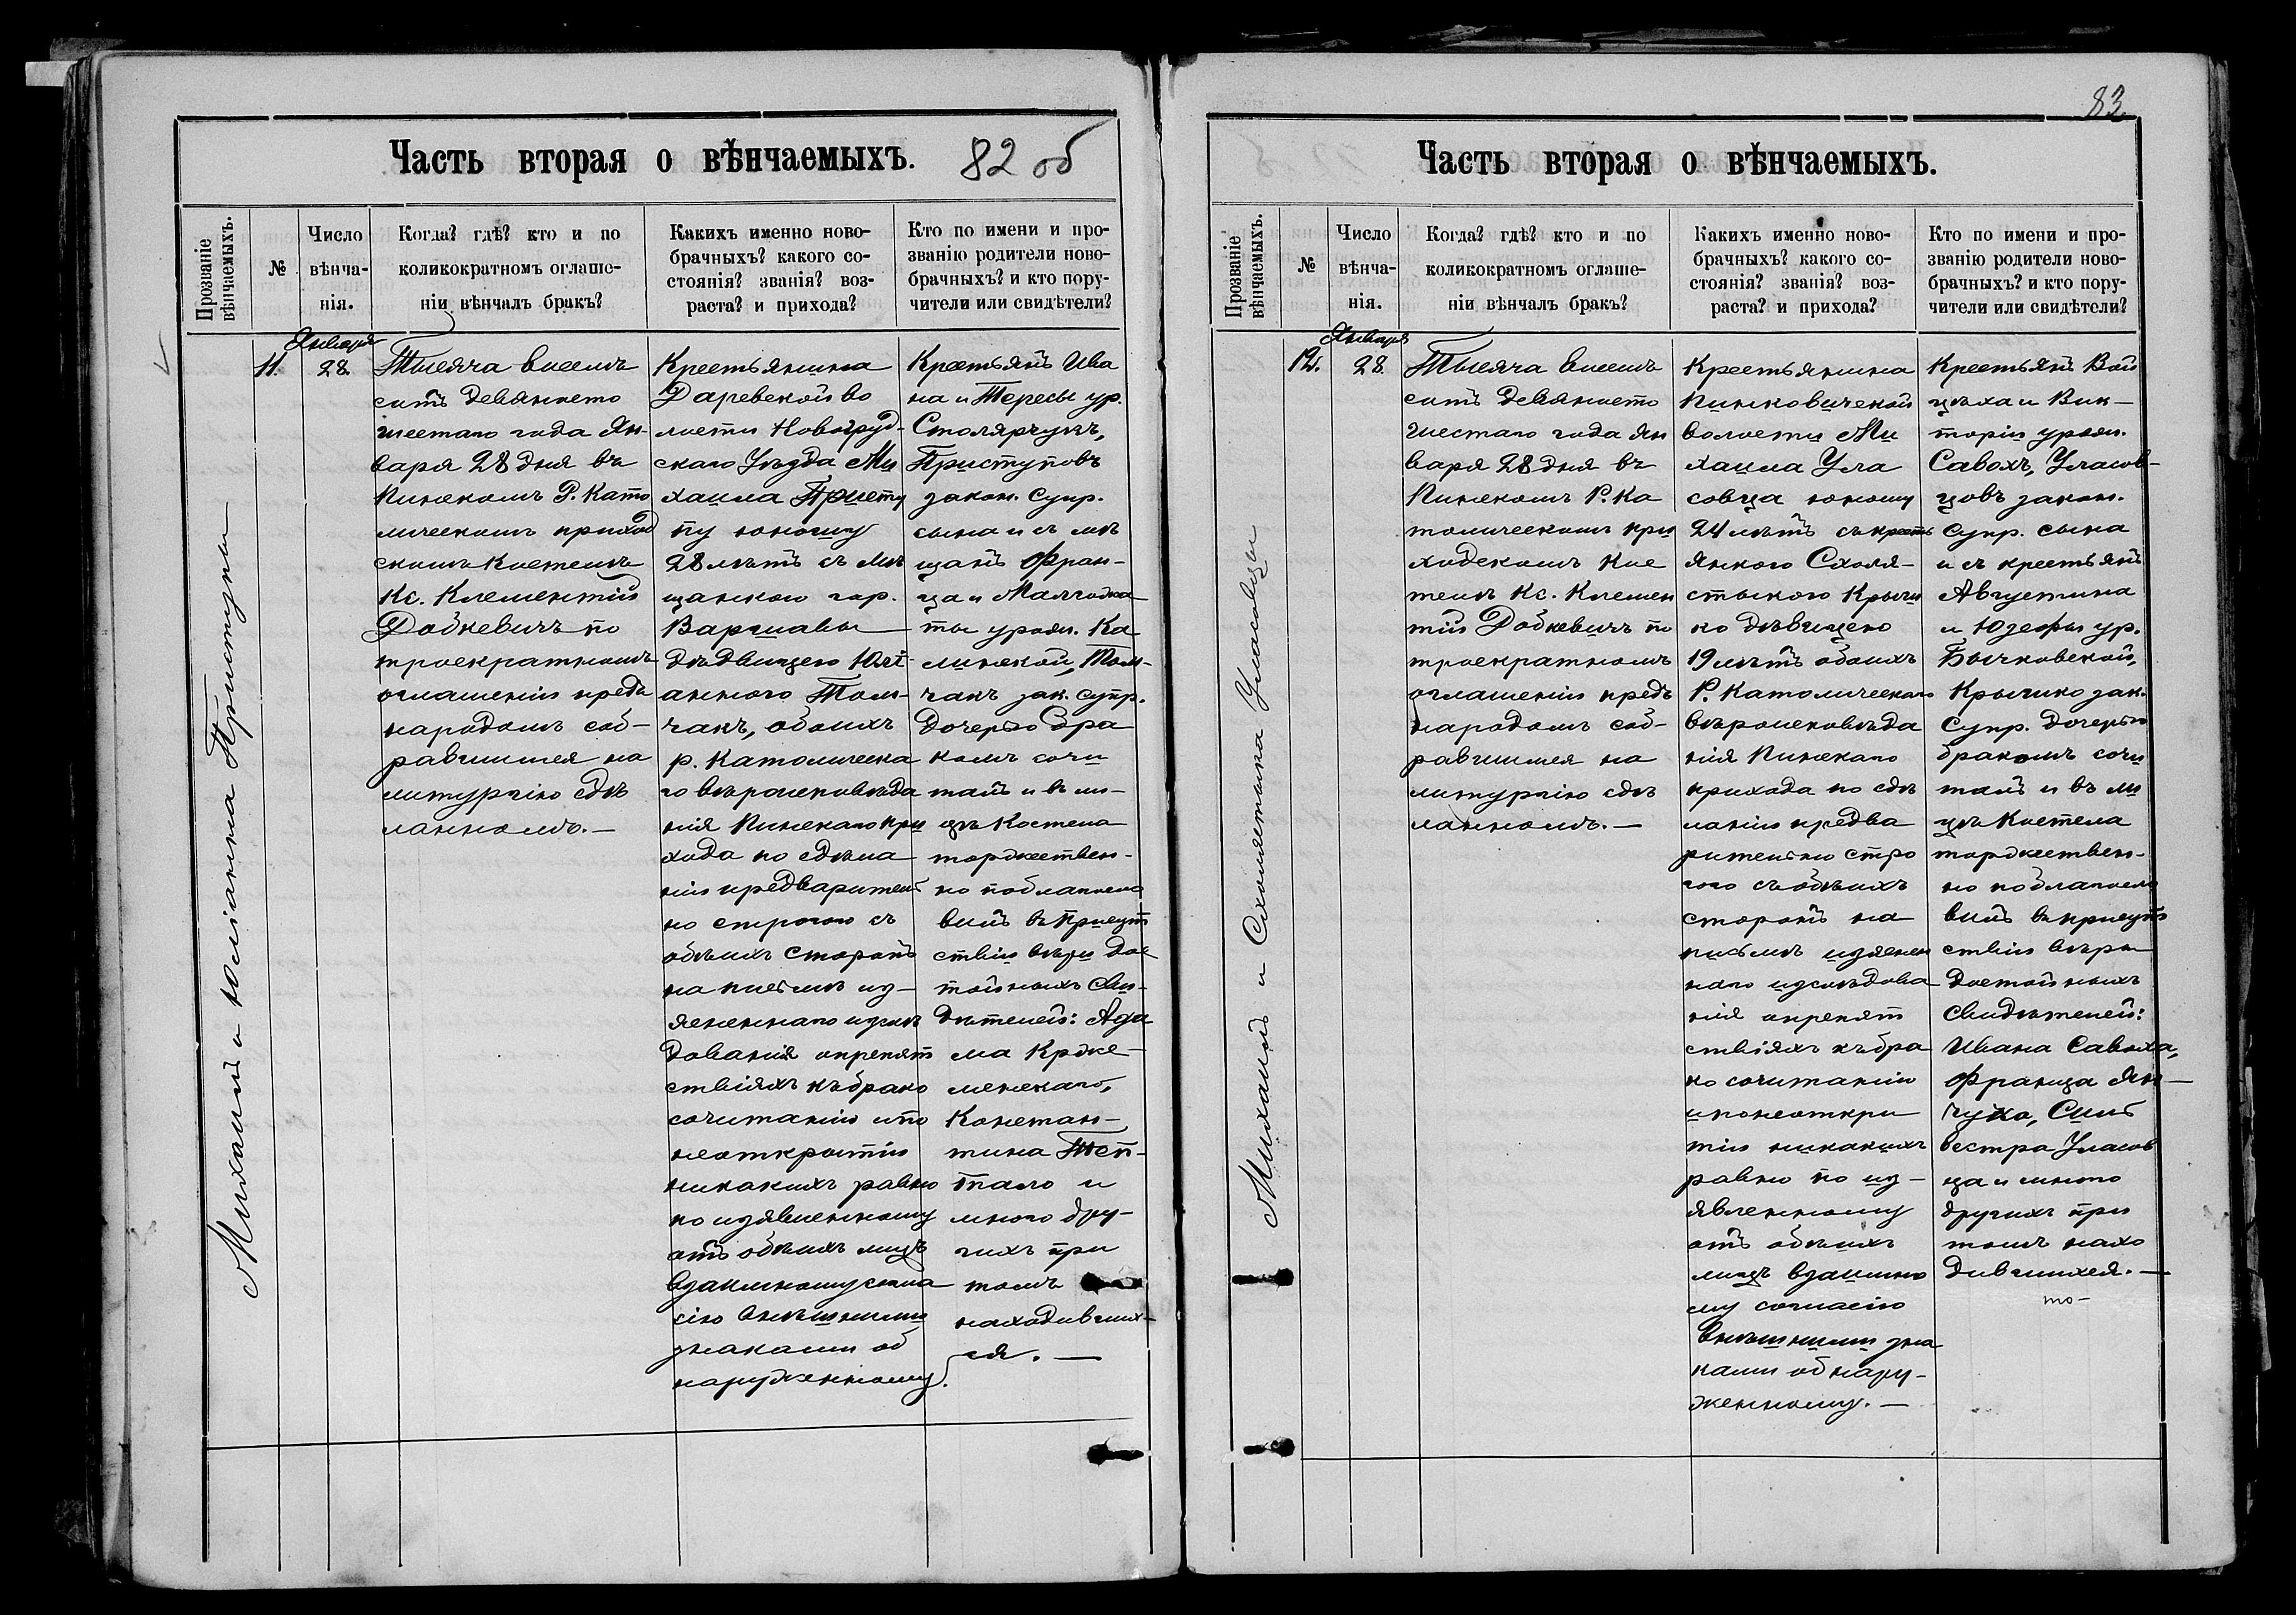 82 об
Часть вторая о вѣнчаемыхъ.
Прозваніе вѣнчаемыхъ.
№
Число вѣнча-
нія.
Когда? гдѣ? кто и по
коликократномъ оглаше-
ніи вѣнчалъ бракъ?
Какихъ именно ново-
брачныхъ? какого со-
стоянія? званія? воз-
раста? и прихода?
Кто по имени и про-
званію родители ново-
брачныхъ? и кто пору-
чители или свидѣтели?
Михаилъ и Юліанна Приступы
11.
Января
28.
Тысяча восемь
сотъ девяносто
шестаго года Ян-
варя 28 дня въ
Пинскомъ Р. Като
лическомъ приход
скомъ Костелѣ
Кс. Клементій
Добкевичъ по
троекратномъ
оглашеніи предъ
народомъ соб-
равшимся на
литургію сдѣ
ланномъ.—
Крестьянина
Даревской во
лости Новогруд-
скаго Уѣзда Ми
хаила Присту
пу юношу
28 лѣтъ съ мѣ
щанкою гор.
Варшавы
дѣвицею Юлі-
анною Толь-
чакъ, обоихъ
р. Католическа
го вѣроисповѣда
нія Пинскаго при
хода по сдѣла
ніи предваритель
но строгаго съ
обѣихъ сторонъ
на письмѣ из-
ясненнаго изслѣ
дованія о препят
ствіяхъ къ брако
сочитанію и по
неоткрытіи
никакихъ равно
по изявленному
отъ обѣихъ лицъ
взаимному согла
сію внѣшними
знаками об
наруженному.
Крестьянъ Ива
на и Тересы ур.
Столярчукъ,
Приступовъ
закон. супр.
сына и съ мѣ
щанъ Фран-
ца и Малгожа
ты урожд. Ка
линской, Толь-
чакъ зак. супр.
дочерью бра
комъ сочи
талъ и въ ли-
цѣ Костела
торжествен-
но поблагосло
вилъ въ присут
ствіи вѣри дос
тойныхъ сви-
дѣтелей: Ада
ма Крже-
менскаго,
Констан-
тина
и
много дру-
гихъ при
томъ
находивших-
ся.—
83.
Часть вторая о вѣнчаемыхъ.
Прозваніе вѣнчаемыхъ.
№
Число вѣнча-
нія.
Когда? гдѣ? кто и по
коликократномъ оглаше-
ніи вѣнчалъ бракъ?
Какихъ именно ново-
брачныхъ? какого со-
стоянія? званія? воз-
раста? и прихода?
Кто по имени и про-
званію родители ново-
брачныхъ? и кто пору-
чители или свидѣтели?
Михаилъ и Схолястыка Уласовцы
12.
Января
28.
Тысяча восемь
сотъ девяносто
шестаго года Ян
варя 28 дня въ
Пинскомъ Р. Ка
толическомъ при
ходскомъ Кос
телѣ Кс. Клемен
тій Добкевичъ по
троекратномъ
оглашеніи предъ
народомъ соб-
равшимся на
литургію сдѣ
ланномъ.—
Крестьянина
Пинковичской
волости Ми
хаила Ула
совца юношу
24 лѣтъ съ кресть
янкою Схоля-
стыкою Крычи
ко дѣвицею
19 лѣтъ обоихъ
Р. Католическаго
вѣроисповѣда
нія Пинскаго
прихода по сдѣ
ланіи предва
рительно стро
гаго съ обѣихъ
сторонъ на
письмѣ изяснен
наго изслѣдова
нія о препят
ствіяхъ къ бра
ко сочитанію
и по неоткры
тіи никакихъ
равно по из-
явленному
отъ обѣихъ
лицъ взаимно
му согласію
внѣшними зна
ками обнару-
женному.—
Крестьянъ Вой
цѣха и Вик-
торіи урожд.
Савохъ, Уласов-
цовъ закон.
супр. сына
и съ крестьянъ
Августина
и Юзефы ур.
Бычковской,
Крычико зак.
супр. дочерью
бракомъ сочи
талъ и въ ли
цѣ Костела
торжествен-
но поблагосло
вилъ въ присут
ствіи вѣры
достойныхъ
свидѣтелей:
Ивана Савоха,
Франца Ян-
чука, Силь
вестра Уласов
ца и много
другихъ при
томъ нахо
дившихся.—
то-